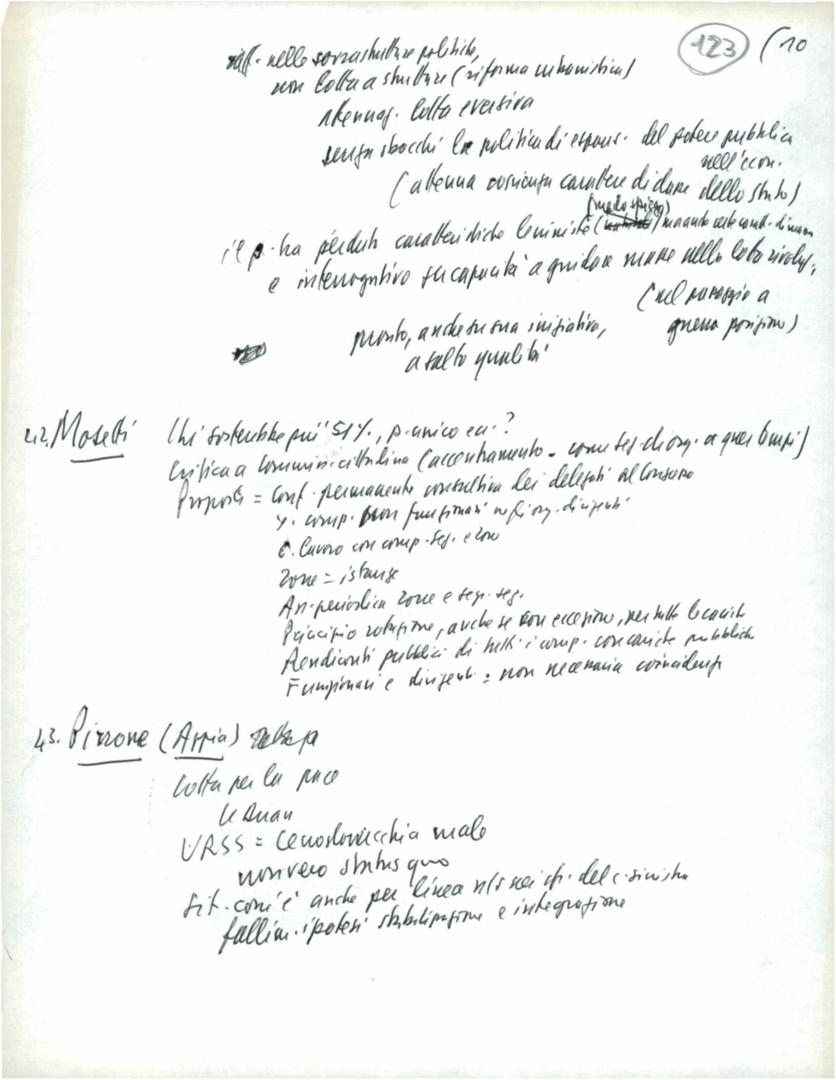 123 (10
raff. nelle sovrastrutture politiche,
non lotta a strutture (riforma urbanistica)
attenuaz. lotta eversiva
senza sbocchi la politica di espans. del potere pubblico
nell'econ.
(attenua coscienza carattere di classe dello stato)
il p. ha perduto caratteristiche leniniste
e interrogativo su capacità a guidare masse nella lotta rivoluz.,
(nel passaggio a
guerra posizione)
pronto, anche su sua iniziativa,
a salto qualità
42. Mosetti Chi sosterrebbe più 51%, p. unico ecc.?
Critica a commiss. cittadina (accentramento - come seg. di org. a quei tempi)
Proposte = conf. permanente consultiva dei delegati al Congresso
+ comp. non funzionari negli org. dirigenti
C. lavoro con comp. seg. e zone
Zone = istanze
Ass. periodica zone e segr. sez.
Principio rotazione, anche se con eccezioni, per tutte le cariche
Rendiconti pubblici di tutti i comp. con cariche pubbliche
Funzionari e dirigenti = non necessaria coincidenza
43. Pizzone (Appia)
Lotta per la pace
Le Duan
URSS = Cecoslovacchia male
non vero status quo
Sit. com'è anche per linea del c. sinistra
fallim. ipotesi stabilizzazione e integrazione